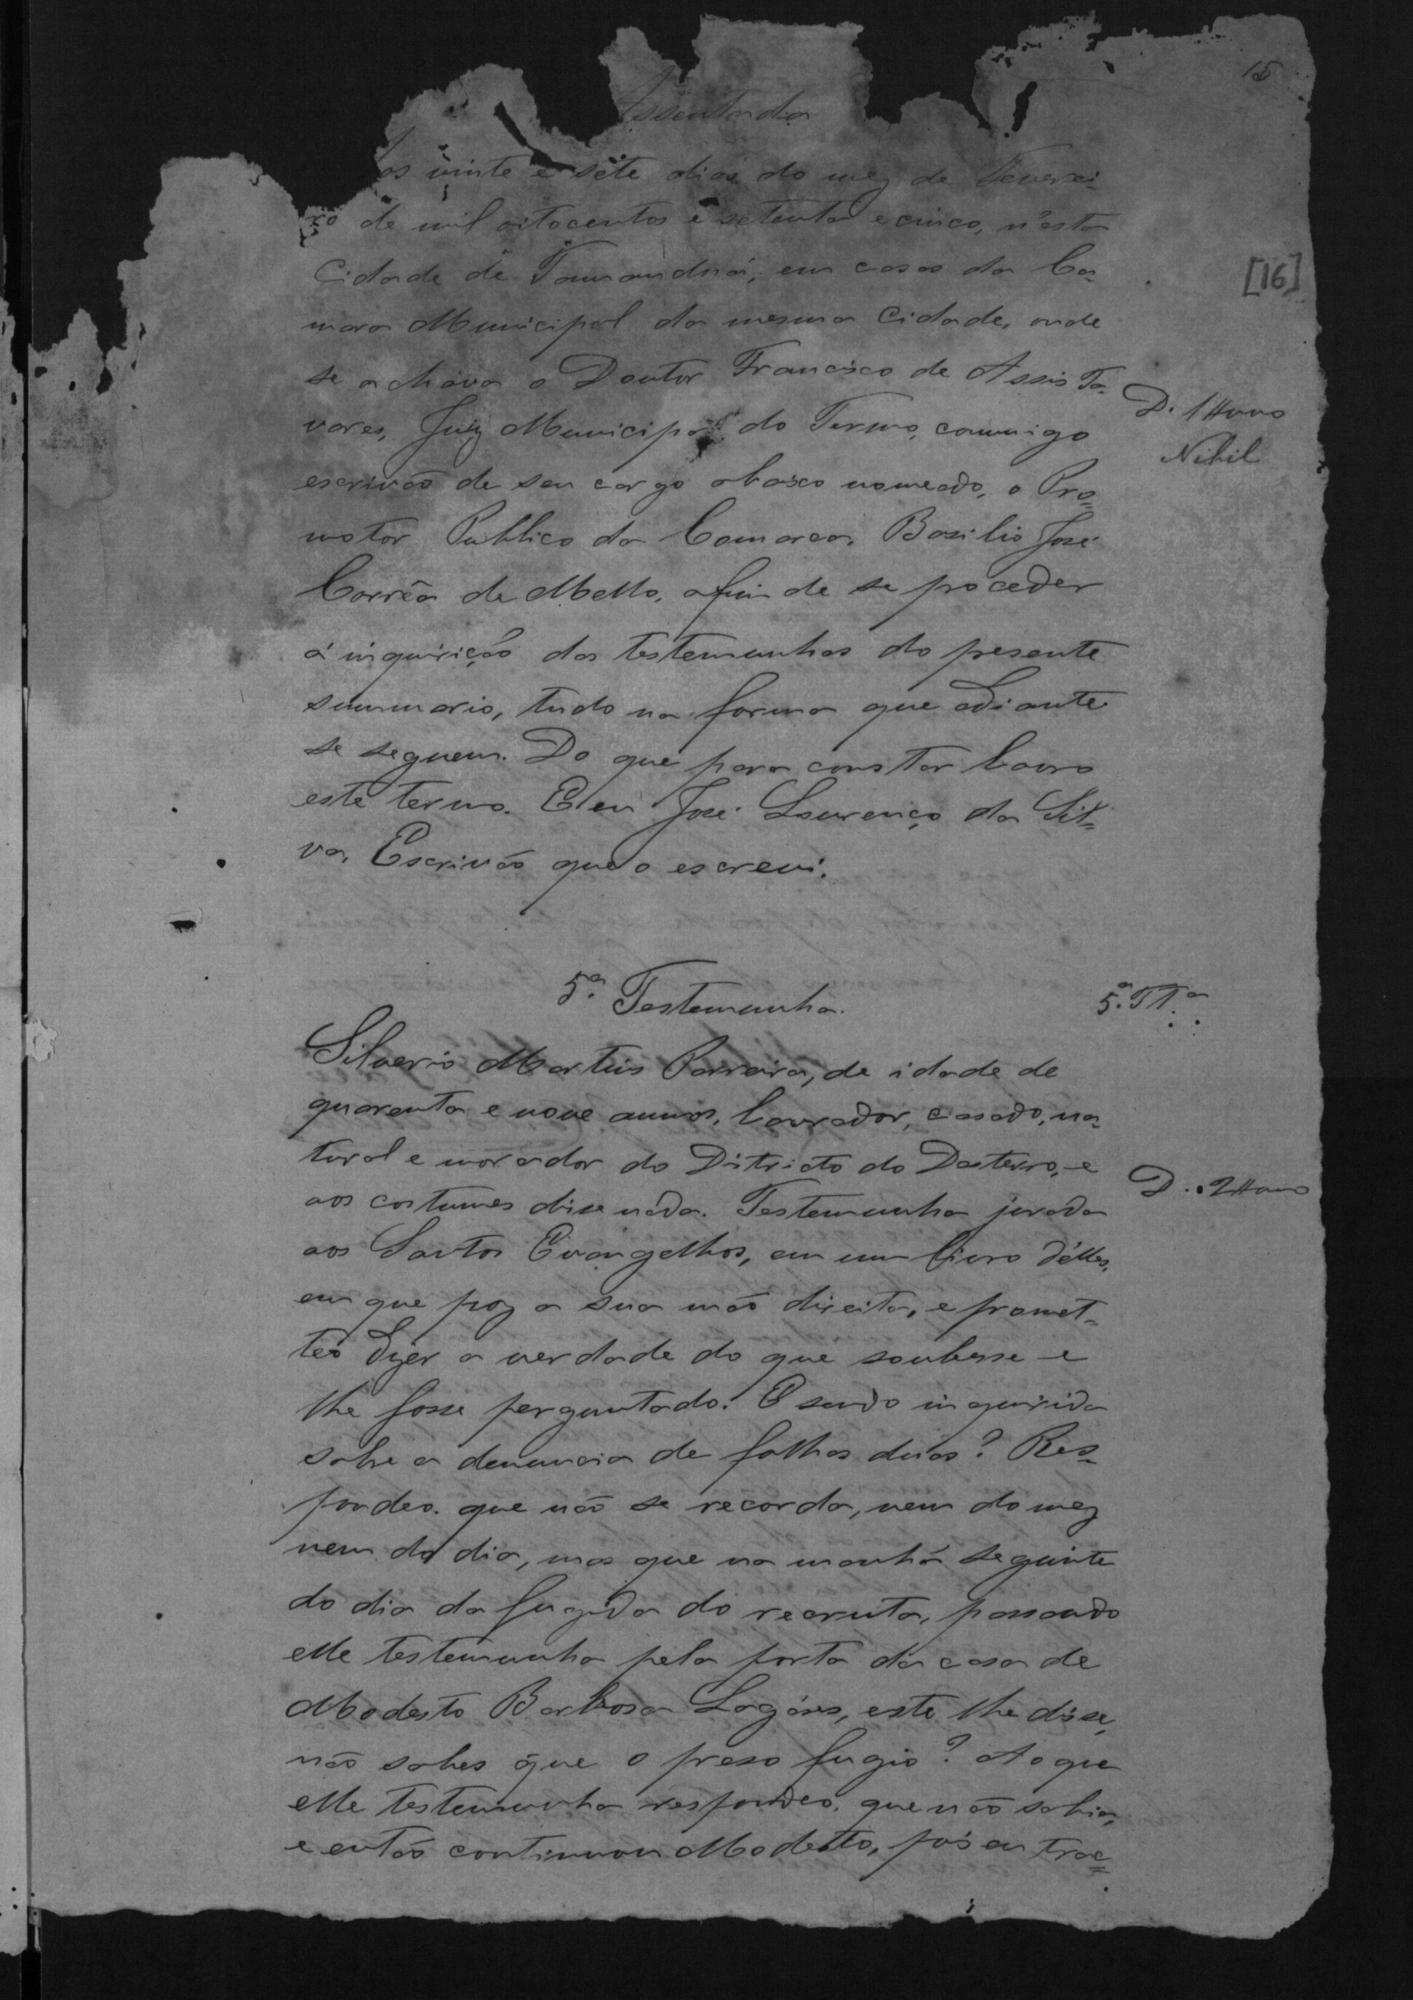 15
Assentada
Aos vinte e sete dias do mez de Feverei-
ro de mil oitocentos e setenta e cinco, n'esta
Cidade de Tamanduá, em casas da Ca-
mara Municipal da mesma Cidade, onde
[16]
se achava o Doutor Francisco de Assis Ta-
vares, Juiz Municipal do Termo, commigo
D. 1
Nihil
escrivão de seu cargo abaixo nomeado, o Pro-
motor Publico da Comarca, Basilio José
Corrêa de Mello, afim de se proceder
á inquirição das testemunhas do presente
summario, tudo na forma que adiante
se seguem. Do que para constar lavro
este termo. E eu José Lourenço da Sil-
va, Escrivão que o escrevi.
5ª Testemunha.
5ª Tª
Silverio Martins Parreira, de idade de
quarenta e nove annos, lavrador, casado, na-
tural e morador do Districto do Desterro, e
D. 2
aos costumes disse nada. Testemunha jurada
aos Santos Evangelhos, em um livro délles,
em que poz a sua mão direita, e promet-
teo dizer a verdade do que soubesse e
lhe fosse perguntado. E sendo inquirida
sobre a denuncia de folhas duas? Res-
pondeo. que não se recorda, nem do mez
nem do dia, mas que na manhã seguinte
do dia da fugida do recruta, passando
elle testemunha pela porta da casa de
Modesto Barbosa Lagôas, este lhe disse,
não sabes que o preso fugio? Ao que
elle testemunha respondeo. que não sabia,
e então continuou Modesto, pois eu trac-